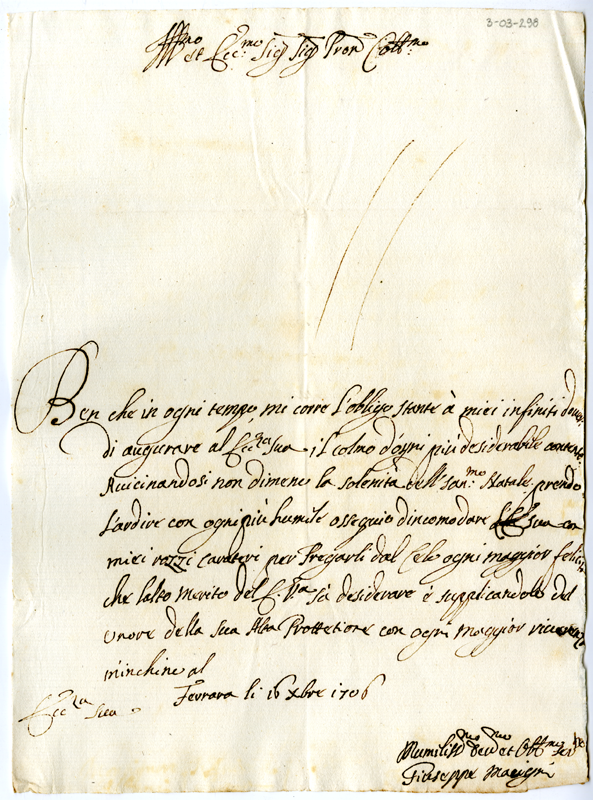 3-03-298
Ill.mo et Ecc.mo Sig.r Sig.r Pron Coll.mo
Ben che in ogni tempo mi corre l'obligo stante à miei infiniti doueri
di augurare al Ecc.za sua il colmo d'ogni più desiderabile contento
Auicinandosi non dimeno la solenità dell' San.mo Natale, prendo
l'ardire con ogni più humile ossequio d'incomodare sua con
miei rozzi carateri per Pregarli dal Celo ogni maggior felicità
che l'alto merito del E.za sà desiderare e supplicandola del
onore della sua Alta Prottetione con ogni maggior riuerenza
m'inchino al
Ferrara li 16 Xbre 1706
Ecc.za sua
Humiliss.mo deu.mo et Obb.mo ser.re
Giuseppe